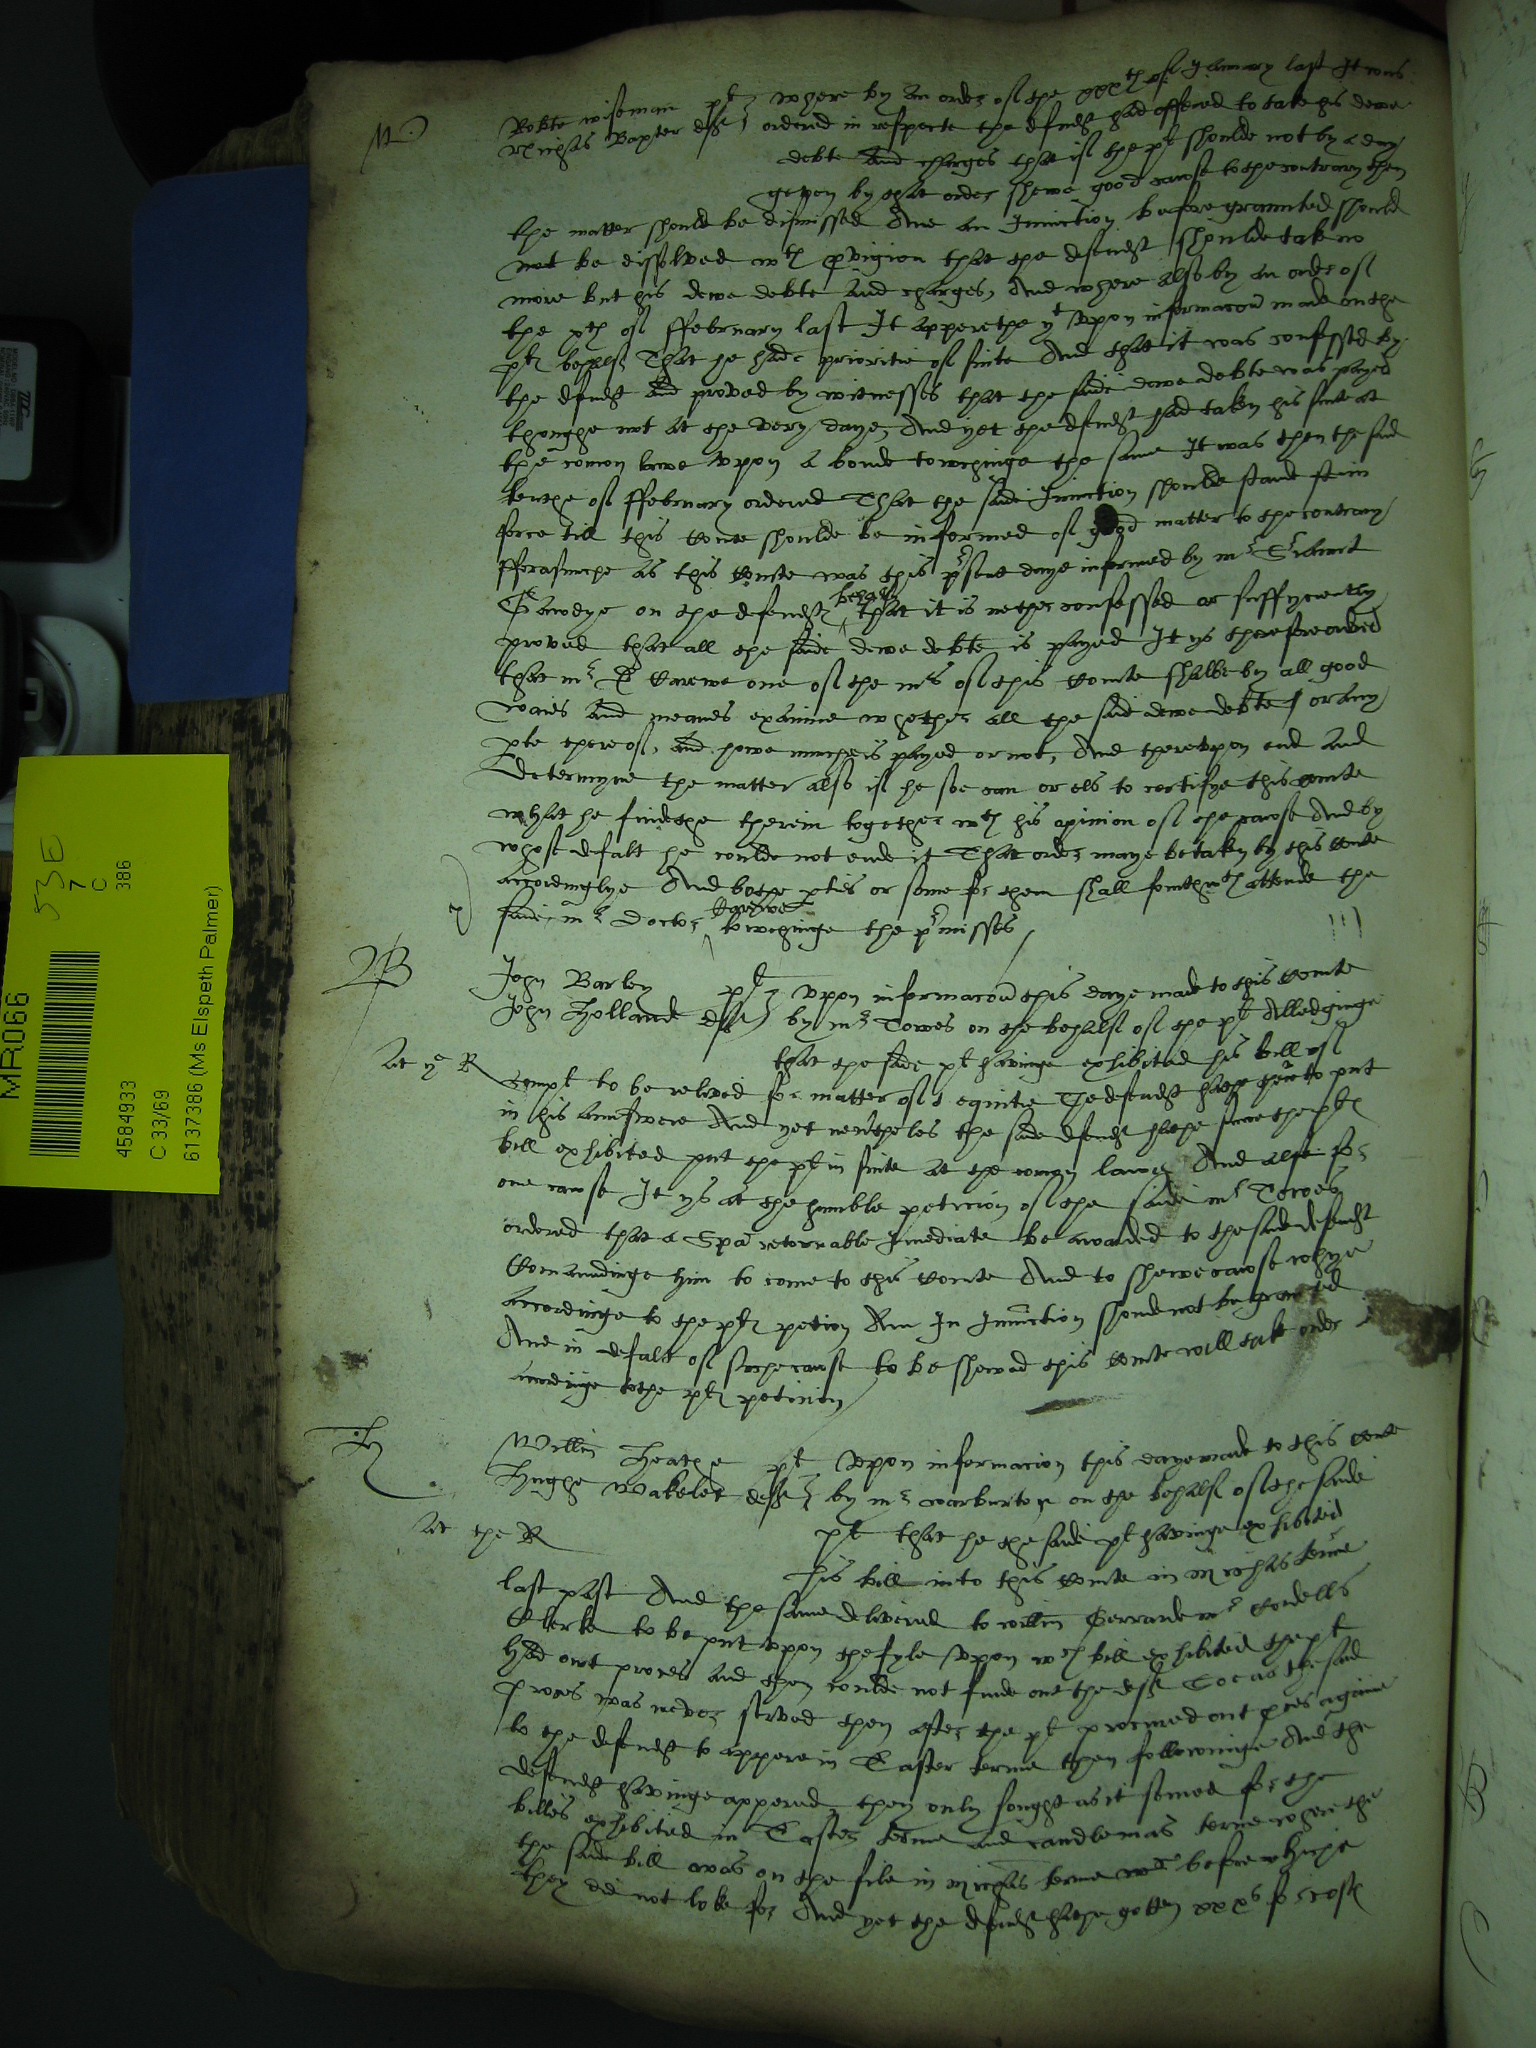 W
Robte wiseman plt where by an order of the xxxth of January last It was
Nichas Baxter defft ordered in respecte the defendt had offered to take his dewe
debte and charges that if the plt shoulde not by a day
geven by that order shewe good cawse to the contrary then
the matter should be dismissed And an Iniunction before graunted should
not be dissolved wth pvision that the defendt shoulde take no
more but his dewe debte and charges, And where also by an order of
the xth of ffebruary last It apperethe yt upon informacon made on the
plts behalf That he hade prioritie of suite And that it was confessed by
the defendt and proved by witnesses that the saide dewe debte was payed
thoughe not at the very daye, And yet the defendt had taken his suite at
the comon lawe upon a bonde towchinge the same It was then the said
tenthe of ffebruary ordered That the saide Iniunction shoulde stand still in
force till this Courte shoulde be informed of good matter to the contrary
fforasmuche as this Courte was this prsent daye informed by mr Seriaunt
Gawdye on the defendts behalf that it is nether confessed or suffycyently
proved that all the saide dewe debte is payed It ys therefore ordred
that mr D Carewe one of the mrs of this Courte shalbe by all good
waies and meanes examine whether all the said dewe debte or any
pte thereof, and howe muche is payed or not, And thereupon end and
determyne the matter also if he soe can or els to certifye this Courte
what he findethe therein together wth his opinion of the cawse And by
whose defalt he coulde not ende it That order maye be taken by this Courte
accordinglye And bothe pties or some for them shall forthwth attende the
saide mr Doctor Carewe towchinge the prmisses
B
John Barley plt upon informacon this daye made to this Courte
John Holland defft by mr Towes on the behalf of the plt Alledginge
at ye R
that the saide plt havinge exhibited his bill of
complt to be releved for matter of equitie The defendt hathe to put
in his Answere And yet nevertheles the saide defendt hathe since the plts
bill exhibited put the plt in suite at the comon lawe And also for
one cawse It ys at the humble peticion of the saide mr Towes
ordered that a Spa retornable Imediate be awarded to the said defendt
Comaundinge him to come to this Courte And to shewe cawse whye
accordinge to the plts peticion An Iniunction should not be graunted
And in defalte of suche cawse to be shewed this Courte will take order
accordinge to the plts peticion
H
Willm Heathe plt upon informacion this daye made to this Courte
Hughe Wakelet defft by mr warburton on the behalf of the saide
at the R
plt that he the saide plt havinge exhibited
his bill into this Courte in Michas terme
last past And the same delivered to willm Gerrarde mr Cordells
Clerke to be put upon the fyle upon wch bill exhibited the plt
had owt proces and then coulde not finde out the defft So as the said
proces was never served then after the plt procured out pces againe
to the defendt to appere in Easter terme then followinge And the
defendt havinge appered, they only sought as it semed for the
billes exhibited in Easter terme and candlemas terme where the
the saide bill was on the file in Michas terme wch before whiche
they did not loke for And yet the defendt hathe gotten xxxs for costs
MR066
53E
7
C
386
4584933
C 33/69
6137386 (Ms Elspeth Palmer)